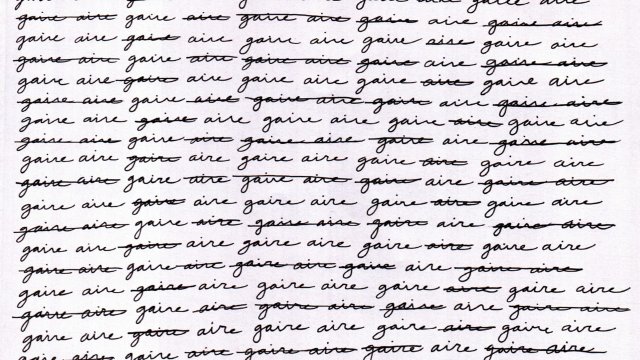 aire gaire aire
gaire aire gaire aire gaire aire gaire aire gaire aire
gaire aire gaire aire gaire aire gaire aire gaire aire
gaire aire gaire aire gaire aire gaire aire gaire aire
gaire aire gaire aire gaire aire gaire aire gaire aire
gaire aire gaire aire gaire aire gaire aire gaire aire
gaire aire gaire aire gaire aire gaire aire gaire aire
gaire aire gaire aire gaire aire gaire aire gaire aire
gaire aire gaire aire gaire aire gaire aire gaire aire
gaire aire gaire aire gaire aire gaire aire gaire aire
gaire aire gaire aire gaire aire gaire aire gaire aire
gaire aire gaire aire gaire aire gaire aire gaire aire
gaire aire gaire aire gaire aire gaire aire gaire aire
gaire aire gaire aire gaire aire gaire aire gaire aire
gaire aire gaire aire gaire aire gaire aire gaire aire
gaire aire gaire aire gaire aire gaire aire gaire aire
gaire aire gaire aire gaire aire gaire aire gaire aire
gaire aire gaire aire gaire aire gaire aire gaire aire